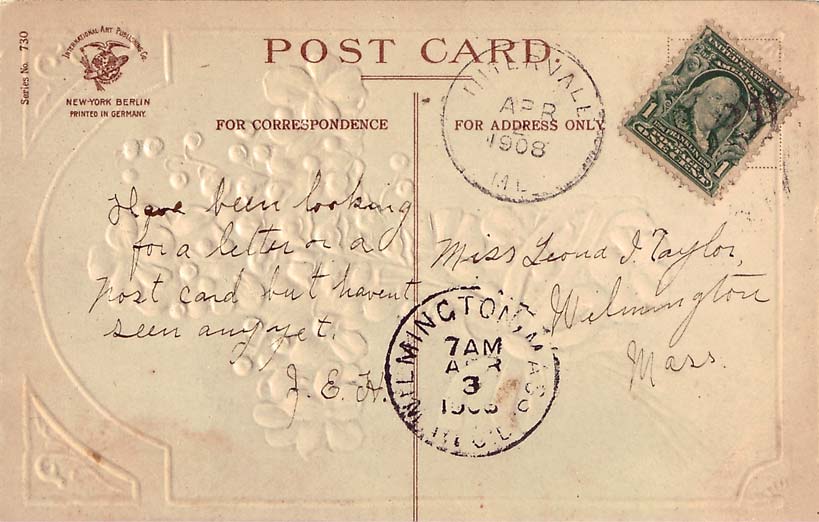 Series No. 730
INTERNATIONAL ART PUBLISHING CO.
NEW-YORK BERLIN
PRINTED IN GERMANY.
POST CARD.
FOR CORRESPONDENCE
FOR ADDRESS ONLY
INTERVALE
APR
1908
UNITED STATES OF AMERICA
FRANKLIN
1 1
Have been looking
for a letter or a
post card but havent
seen any yet.
J. E. H.
Miss Leona J. Taylor,
Wilmington
Mass.
WILMINGTON, MASS.
7 AM
APR
3
1908